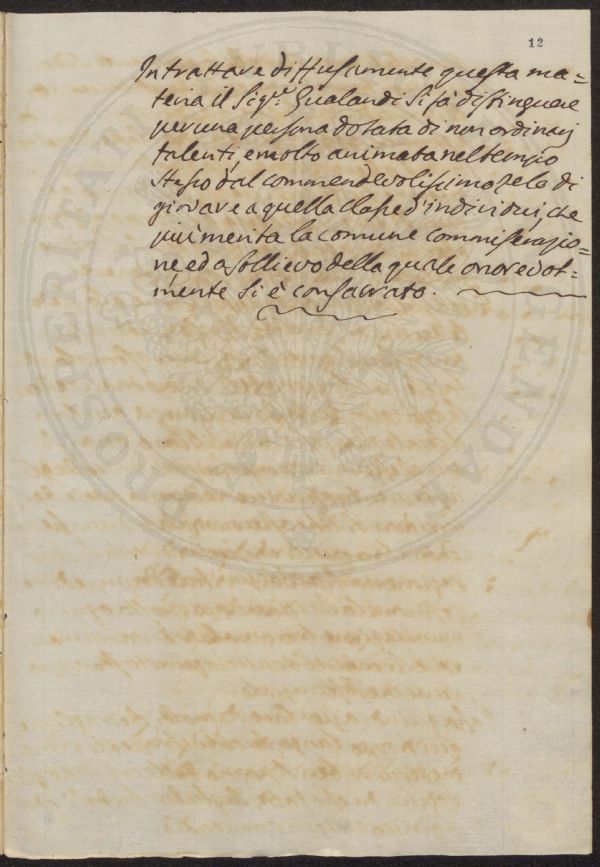 12
In trattare diffusamente questa ma=
teria il Sigr. Gualandi si fà distinguere
per una persona dotata di non ordinarj
talenti, e molto animata nel tempo
stesso dal commendevolissimo zelo di
giovare a quella classe d'individui, che
più merita la comune commiserazio=
ne, ed a sollievo della quale
mente si è consacrato.
PROSPERITATI